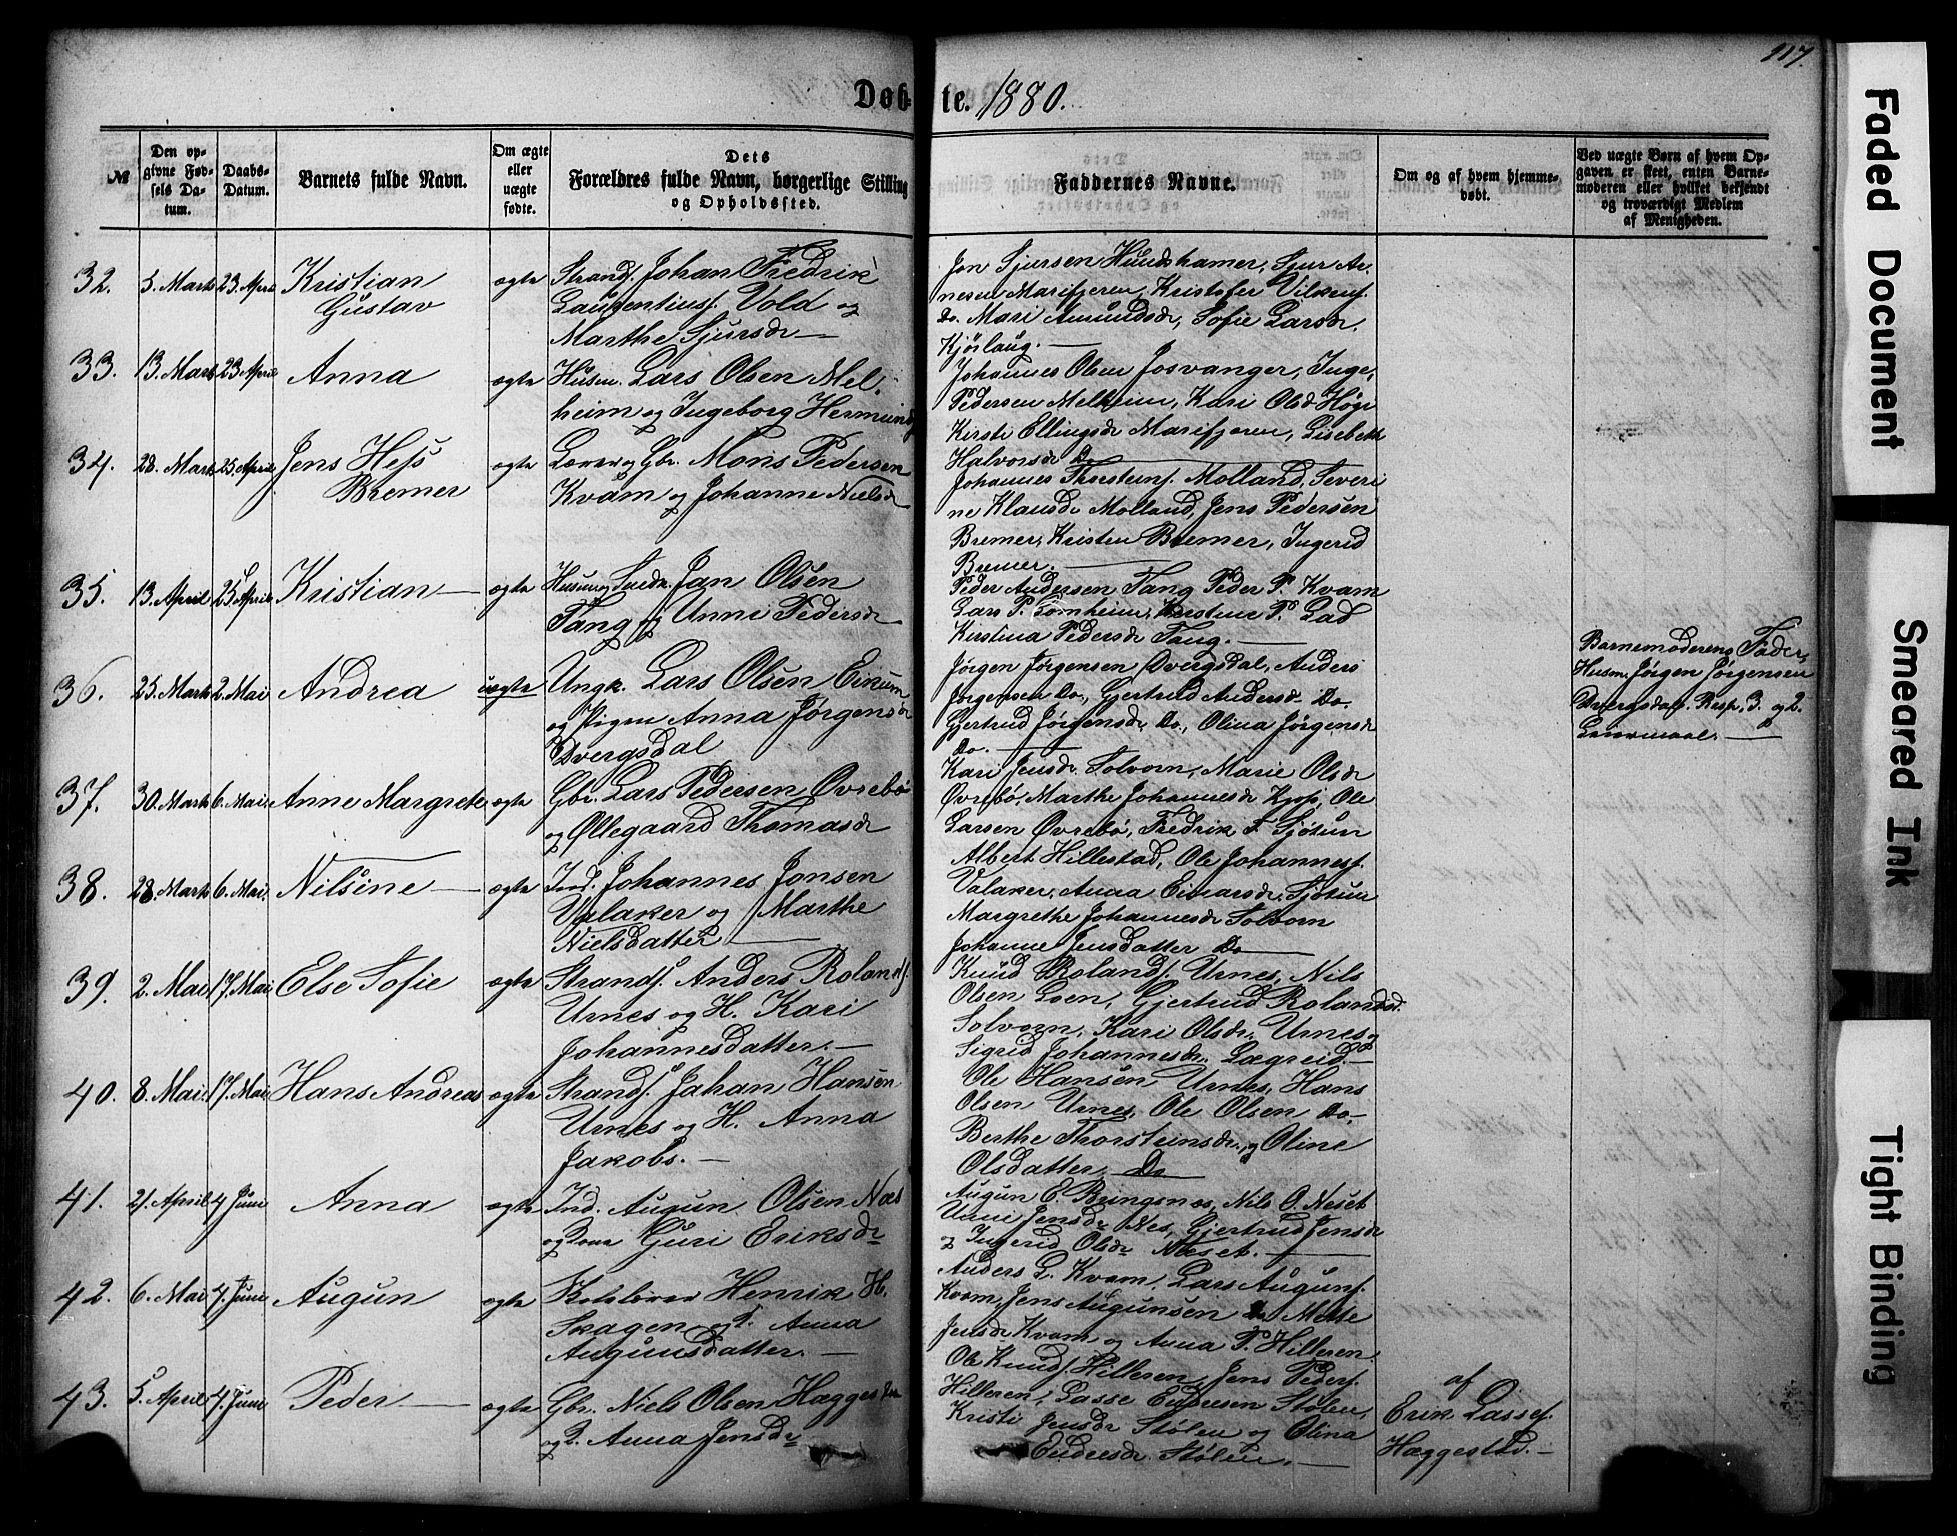 117.
Døb-te. 1880.
№
Den opgivne Fødsels Datum.
Daabs-Datum.
Barnets fulde Navn.
Om ægte eller uægte fødte.
Dets Forældres fulde Navn, borgerlige Stilling og Opholdssted.
Faddernes Navne.
Om og af hvem hjemmedøbt.
Ved uægte Børn af hvem Opgaven er skeet, enten Barnemoderen eller hvilket bekjendt og troværdigt Medlem af Menigheden.
32. 5. Marts 23. April Kristian Gustav ægte
Strands. Johan Fredrik
Laurentius. Vold og
Marthe Sjursdr
Jon Sjursen Hundshamer, Sjur Ar-
nesen Marifjøren, Kristofer Vilkens.
Do. Mari Amundsdr, Sofie Larsdr,
Kjørlaug.
33. 13. Marts 23. April Anna ægte
Husm. Lars Olsen Mel-
heim og Ingeborg Hermunds
Johannes Olsen Josvanger, Inge,
Pedersen Melheim, Kari Olsd Høgi
Kirsti Ellingsdr Marifjøren, Lisebeth
Halvorsdr Do
34. 28. Marts 25. April Jens Hess Bremer ægte
Lærer og Gbr. Mons Pedersen
Kvam og Johanne Nielsdr
Johannes Thorsteins. Molland, Severi
ne Klausdr Molland, Jens Pedersen
Bremer, Kristen Bremer, Ingerid
Bremer.
35. 13. April 25. April Kristian ægte
Husm og Smed. Jan Olsen
Fang og Anna Pedersdr
Peder Andersen Fang Peder P. Kvam
Lars P. Tomheim, Kirstine P. Lad
Kirstina Pedersdr Fang.
36. 25. Marts 2. Mai Andrea uægte
Ungk. Lars Olsen Eikum
og Pigen Anna Jørgensdr
Dvergsdal
Jørgen Jørgensen Dvergsdal, Anders
Jørgensen Do., Gjertrud Andersdr Do.
Gjertrud Jørgensdr. Do., Olina Jørgensdr
Do.
Barnemoderens Fader,
Husm. Jørgen Jørgensen
Dvergsdal. Resp. 3. og 2.
Leiermaal.
37. 30. Marts 6. Mai Anne Margrete ægte
Gbr. Lars Pedersen Øvrebø
og Øllegaard Thomasdr
Kari Jensdr. Solvorn, Marie Olsdr
Øvrebø, Marthe Johannesdr Kjos, Ole
Larsen Øvrebø, Fredrik F. Sjøtun
38. 28. Marts 6. Mai Nilsine ægte
Ind. Johannes Jonsen
Valaker og Marthe
Nielsdatter
Albert Hillestad, Ole Johannes.
Valaker, Anna Einarsdr. Sjøtun
Margrethe Johannesdr Solvorn
Johanne Jensdatter Do
39. 2. Mai 17. Mai Else Sofie ægte
Strands. Anders Rolands.
Urnes og H. Kari
Johannesdatter.
Knud Rolands. Urnes, Nils
Olsen Loen, Gjertrud Rolandsd.
Solvorn, Kari Olsdr. Urnes og
Sigrid Johannesdr. Lægreid.
40. 8. Mai 17. Mai Hans Andreas ægte
Strands. Johan Hansen
Urnes og H. Anna
Jakobs.
Ole Hansen Urnes, Hans
Olsen Urnes, Ole Olsen Do.
Berthe Thorsteinsdr. og Oline
Olsdatter Do
41. 21. April 4 Juni Anna ægte
Ind. Augun Olsen Næs
og Kone Guri Eriksdr
Augun E. Bringsnes, Nils O. Neset
Unni Jensdr Nes, Gjertrud Jensdr
og Ingerid Olsdr Næset.
42. 6. Mai 4. Juni Augun ægte
Skolelærer Henrik H.
Skagen og Anna
Augunsdatter.
Anders L. Kvam, Lars Auguns.
Kvam, Jens Augunsen Do Mette
Jensdr Kvam og Anna P. Hilleren.
43. 5 April 4. Juni Peder ægte
Gbr. Niels Olsen Haggestad
og Anna Jensdr
Ole Knuds. Hilleren, Jens Peders.
Hilleren, Lasse Endresen Stølen,
Kristi Jensdr Stølen og Olina
Endresdr Stølen.
af
Erik Lasses.
Hæggestad.
Faded Document
Smeared Ink
Tight Binding